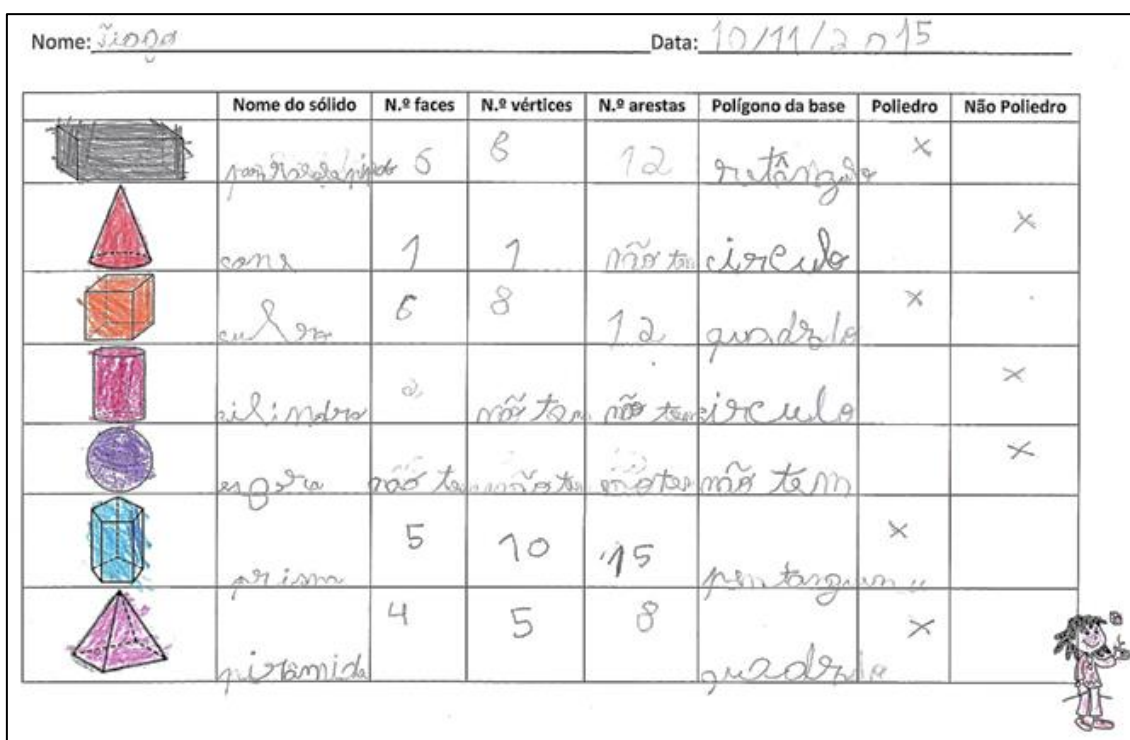 Nome: Data: 10/11/2015
Nome do sólido N.º faces N.º vértices N.º arestas Polígono da base Poliedro Não Poliedro
6 8 12 retângulo x
cone 1 1 não tem circulo x
cubo 6 8 12 quadrado x
cilindro 2 não tem não tem circulo x
esfera não tem não tem não tem não tem x
prisma 5 10 15 x
pirâmide 4 5 8 x